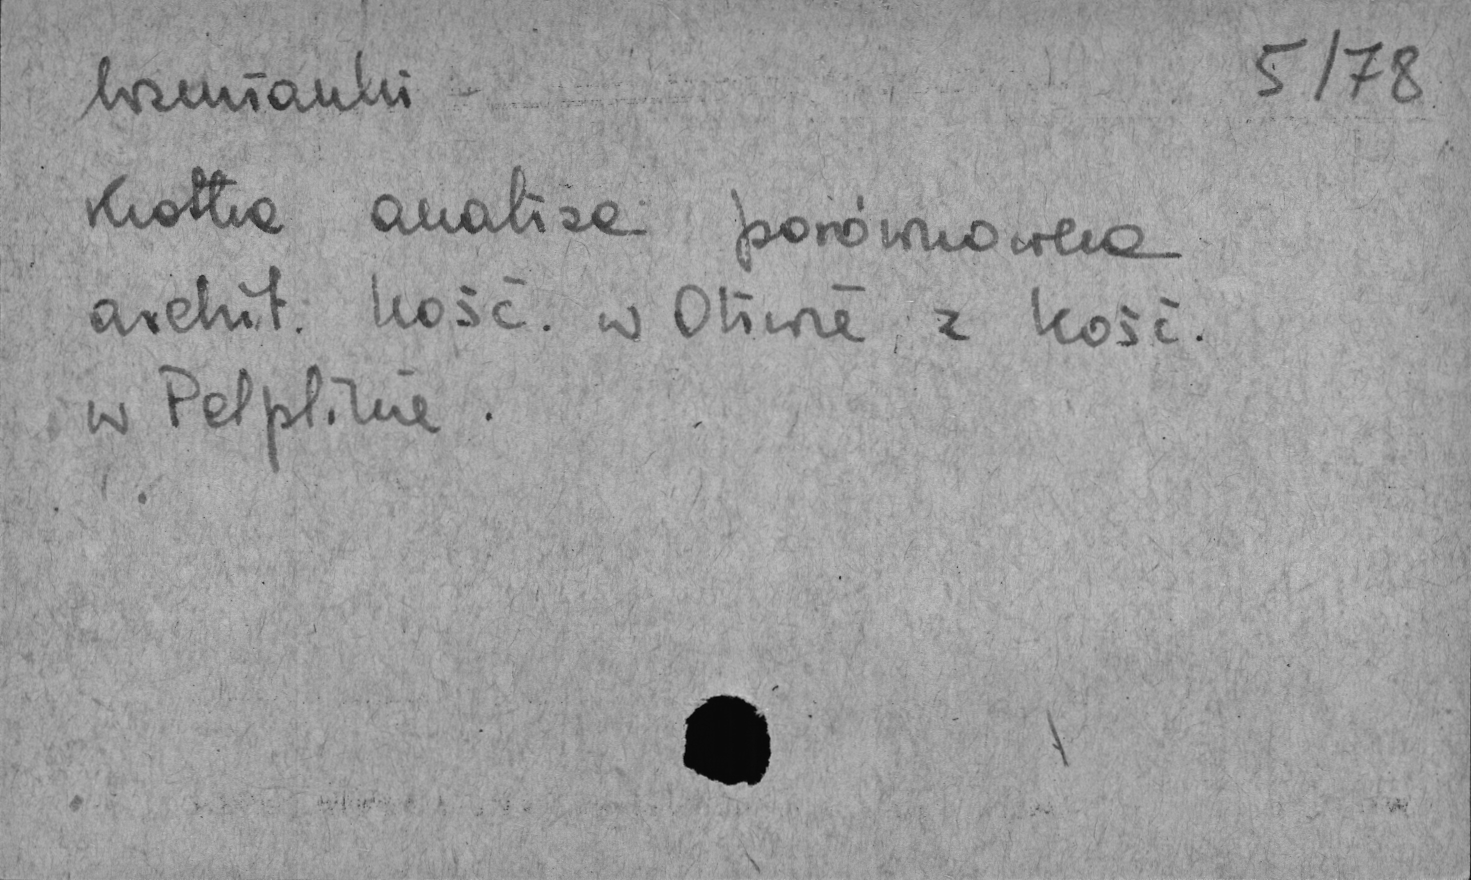 wzmianki 5/78
Krótka analiza porównawcza
archit. kość. w Oliwie z kość.
w Pelplinie.